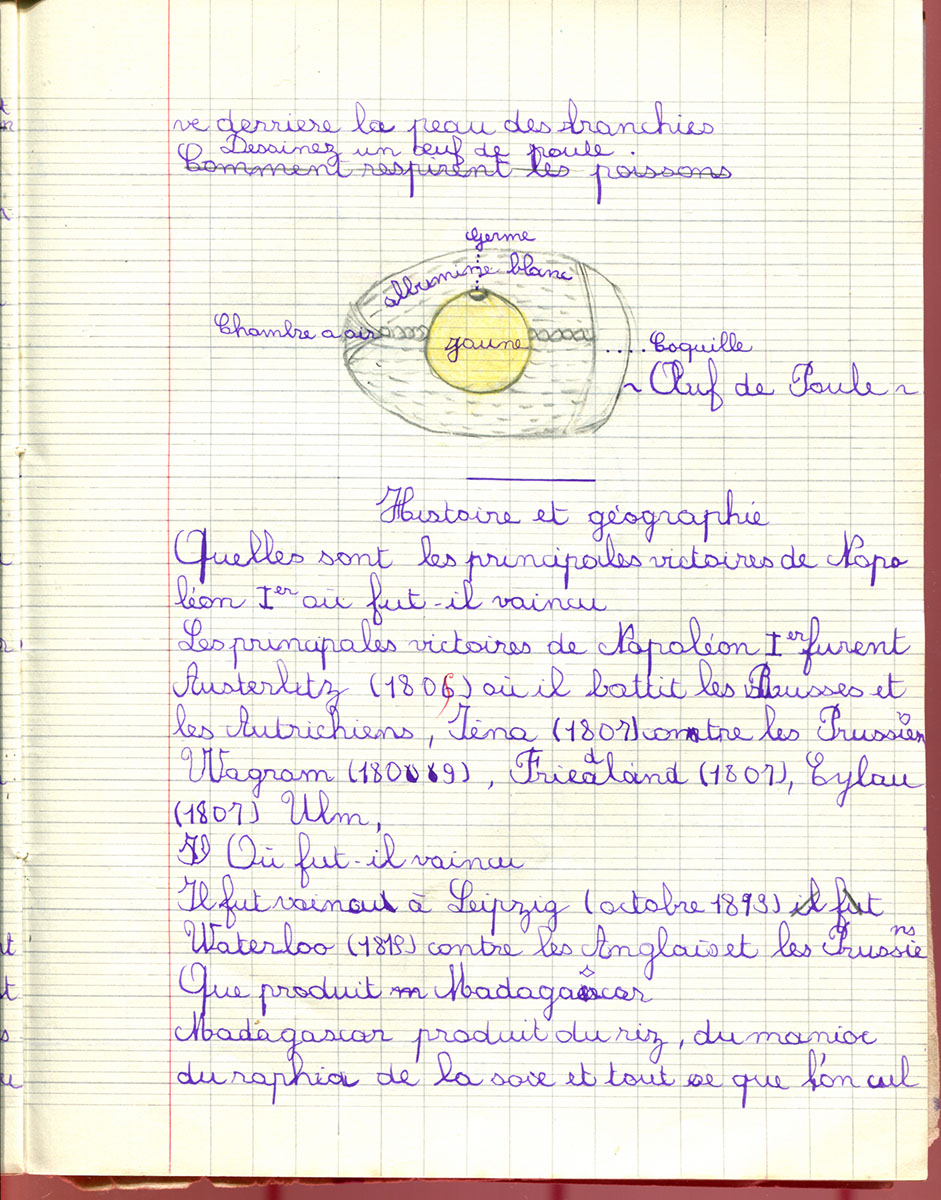 ve derriere la peau des branchies
Dessinez un œuf de poule.
Comment respirent les poissons
Germe
albumine blanc
Chambre a air
jaune
.... Coquille
~ Œuf de Poule ~
Histoire et géographie
Quelles sont les principales victoires de Napo
léon Ier où fut-il vaincu
Les principales victoires de Napoléon Ier furent
Austerlitz (1805) où il battit les Russes et
les Autrichiens, Iéna (1807) contre les Prussien
Wagram (1809), Friedland (1807), Eylau
(1807) Ulm,
Où fut-il vaincu
Il fut vaincu à Leipzig (octobre 1893) il fut
Waterloo (1815) contre les Anglais et les Prussiens
Que produit Madagascar
Madagascar produit du riz, du manioc
du raphia de la soie et tout ce que l'on cul